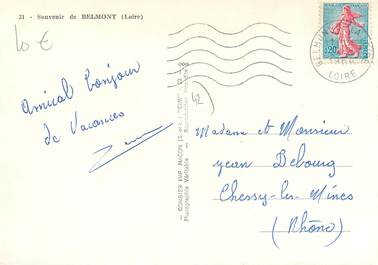 21 - Souvenir de BELMONT (Loire)
10 €
Amical bonjour
de Vacances
42
COMBIER IMP. MACON (S.-et-L.) "CIM"
Photographie Véritable - Reproduction interdite
0,20
LOIRE
Madame et Monsieur
Jean Debourg
Chessy-les-Mines
(Rhône)